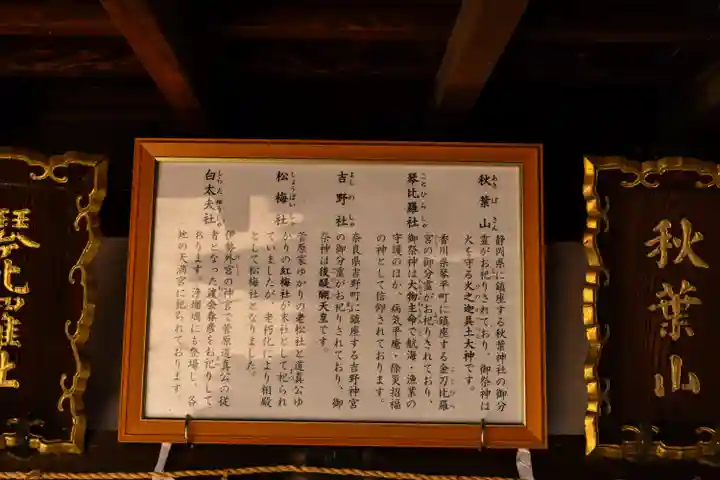 秋葉山
秋葉山
あきばさん
静岡県に鎮座する秋葉神社の御分
霊がお祀りされており、御祭神は
火を守る火之迦具土大神です。
琴比羅社
ことひらしゃ
香川県琴平町に鎮座する金刀比羅
ことひら
宮の御分霊がお祀りされており、
御祭神は大物主命で航海・漁業の
守護のほか、病気平癒・除災招福
の神として信仰されております。
吉野社
よしのしゃ
奈良県吉野町に鎮座する吉野神宮
の御分霊がお祀りされており、御
祭神は後醍醐天皇です。
松梅社
しょうばいしゃ
菅原家ゆかりの老松社と道真公ゆ
かりの紅梅社が末社として祀られ
ていましたが、老朽化により相殿
として松梅社となりました。
白太夫社
伊勢外宮の神官で菅原道真公の従
者となった渡会春彦をお祀りして
おります。浄瑠璃にも登場し、各
地の天満宮に祀られております
琴比羅社